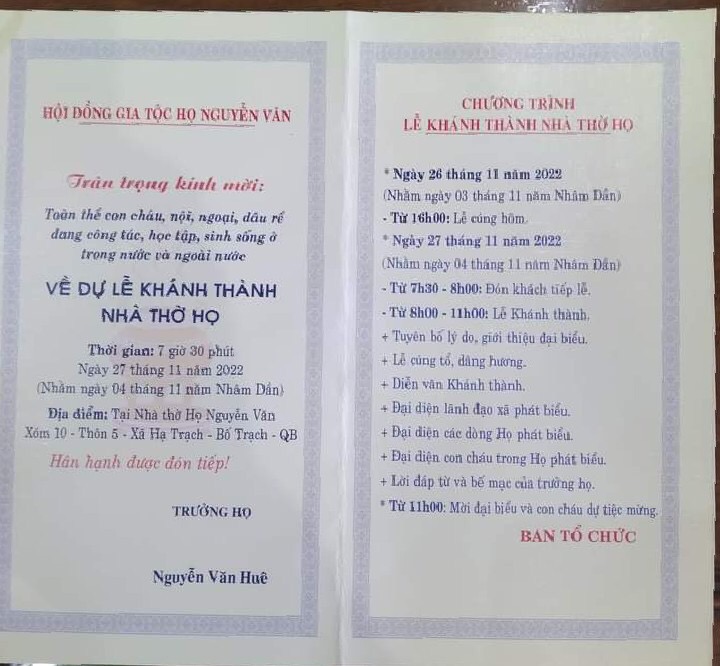 HỘI ĐỒNG GIA TỘC HỌ NGUYỄN VĂN
Trân trọng kính mời:
Toàn thể con cháu, nội, ngoại, dâu rể
đang công tác, học tập, sinh sống ở
trong nước và ngoài nước
VỀ DỰ LỄ KHÁNH THÀNH
NHÀ THỜ HỌ
Thời gian: 7 giờ 30 phút
Ngày 27 tháng 11 năm 2022
(Nhằm ngày 04 tháng 11 năm Nhâm Dần)
Địa điểm: Tại Nhà thờ Họ Nguyễn Văn
Xóm 10 - Thôn 5 - Xã Hạ Trạch - Bố Trạch - QB
Hân hạnh được đón tiếp!
TRƯỞNG HỌ
Nguyễn Văn Huê
CHƯƠNG TRÌNH
LỄ KHÁNH THÀNH NHÀ THỜ HỌ
* Ngày 26 tháng 11 năm 2022
(Nhằm ngày 03 tháng 11 năm Nhâm Dần)
- Từ 16h00: Lễ cúng hôm.
* Ngày 27 tháng 11 năm 2022
(Nhằm ngày 04 tháng 11 năm Nhâm Dần)
- Từ 7h30 - 8h00: Đón khách tiếp lễ.
- Từ 8h00 - 11h00: Lễ Khánh thành.
+ Tuyên bố lý do, giới thiệu đại biểu.
+ Lễ cúng tổ, dâng hương.
+ Diễn văn Khánh thành.
+ Đại diện lãnh đạo xã phát biểu.
+ Đại diện các dòng Họ phát biểu.
+ Đại diện con cháu trong Họ phát biểu.
+ Lời đáp từ và bế mạc của trưởng họ.
* Từ 11h00: Mời đại biểu và con cháu dự tiệc mừng.
BAN TỔ CHỨC